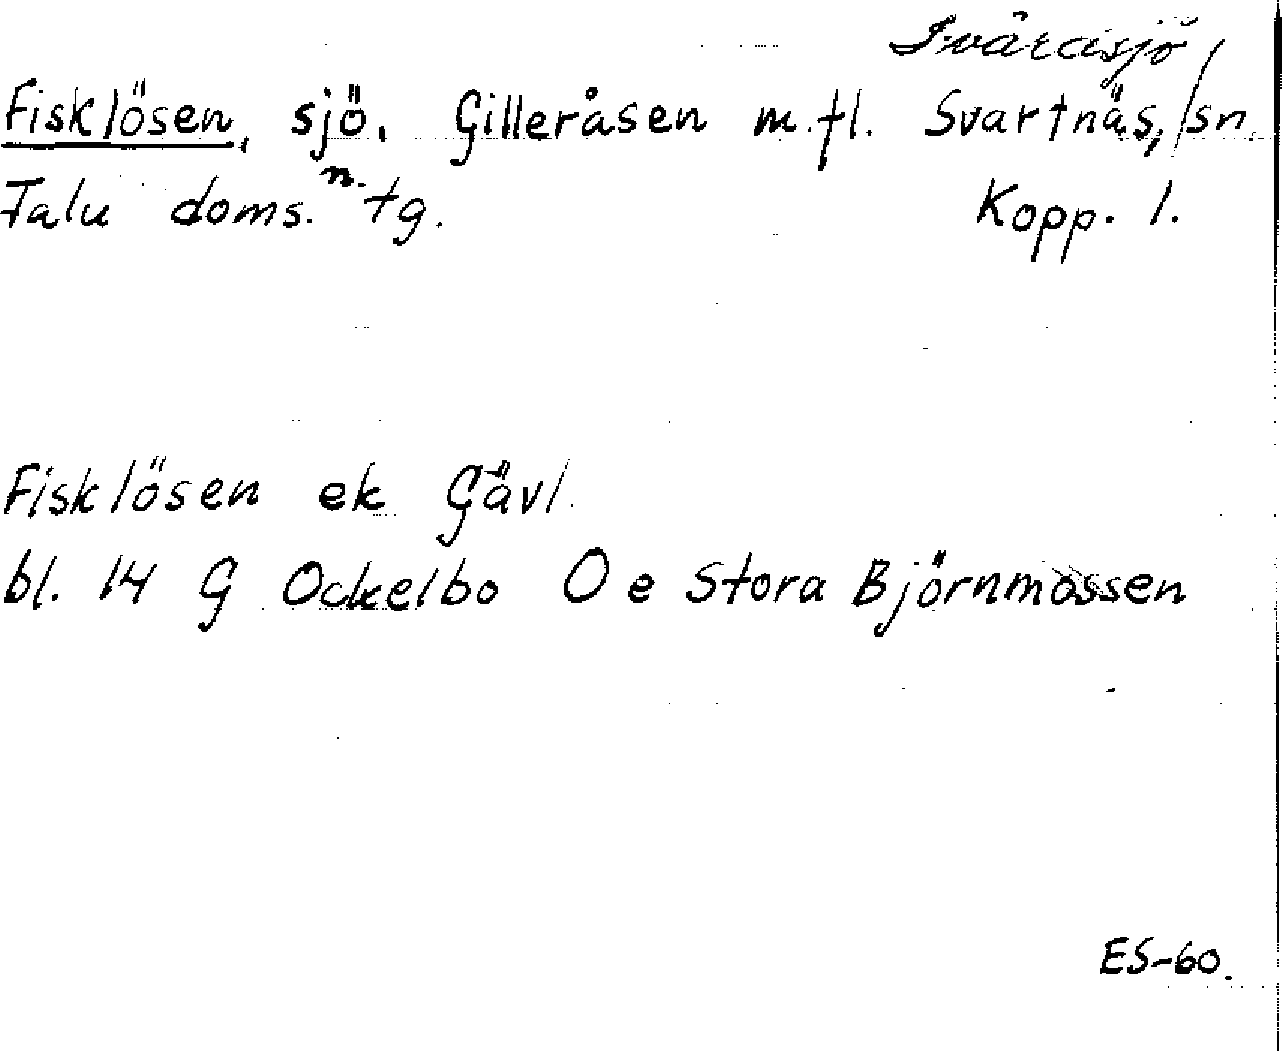 Svärdsjö
Fisklösen, sjö. Gilleråsen m.fl. Svartnäs, / sn.
Falu doms. n. tg. Kopp. l.
Fisklösen ek Gävl.
bl. 14 G Ockelbo O e Stora Björnmossen
ES-60.